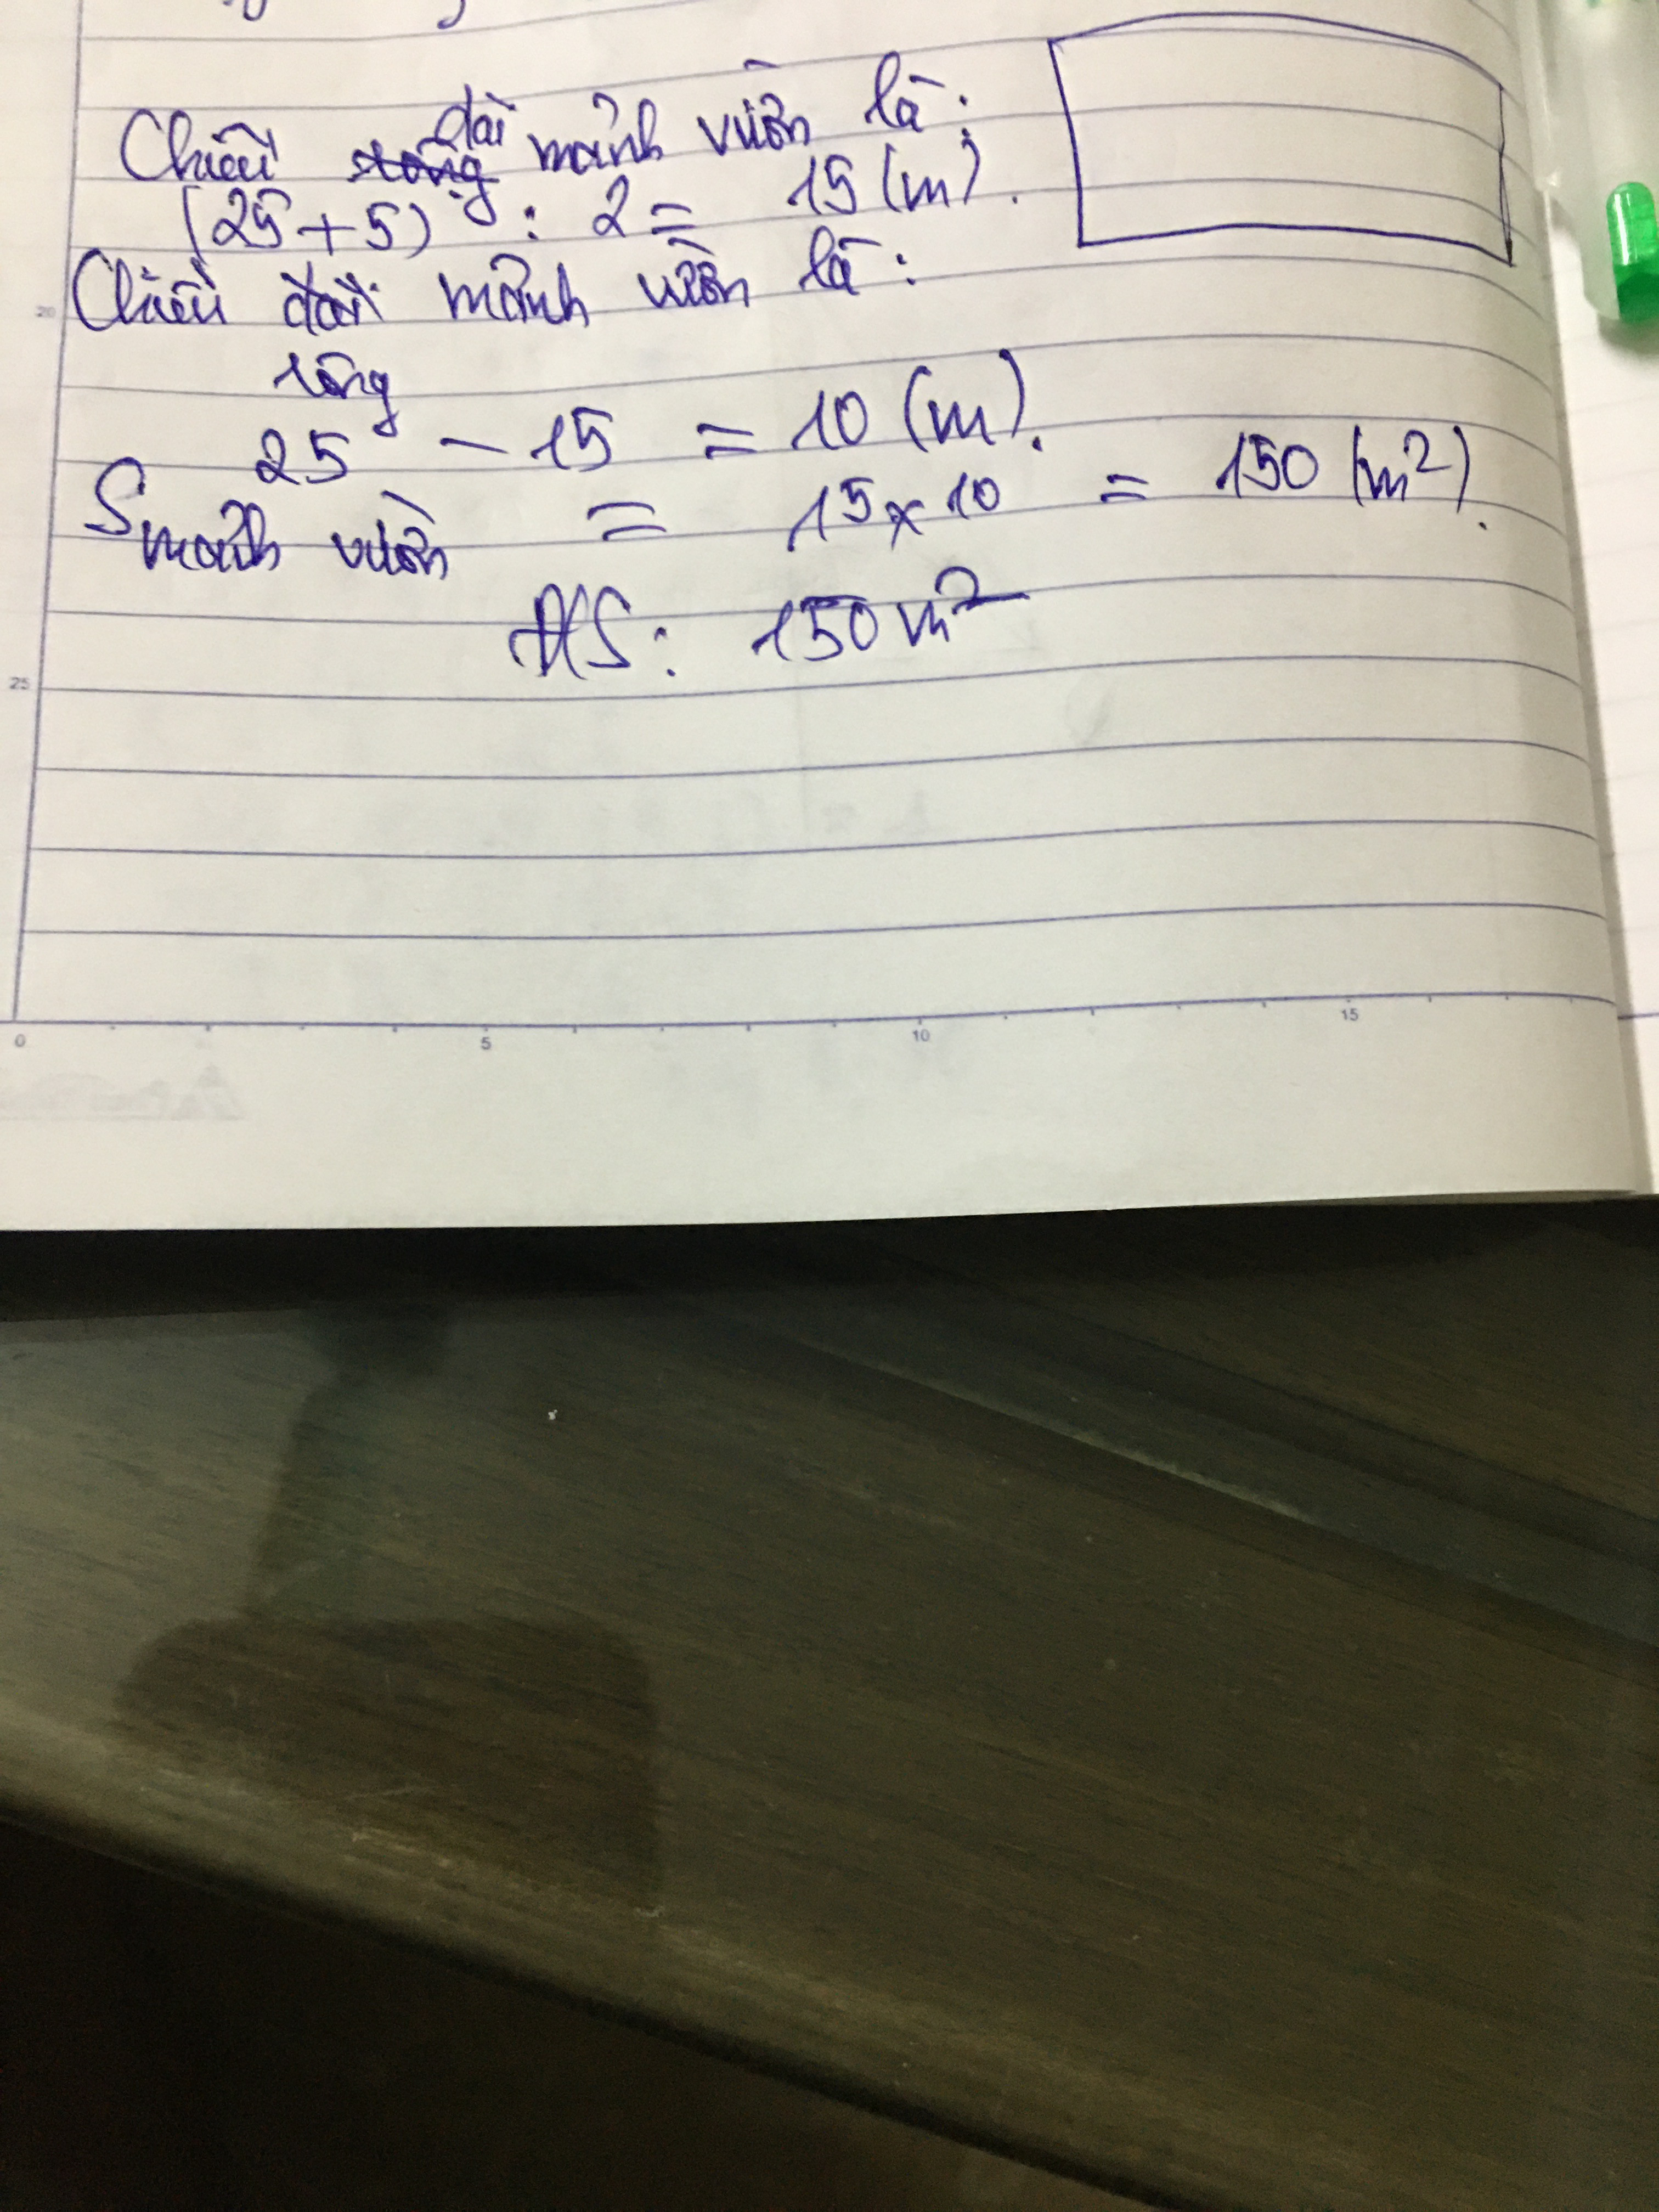 Chiều rộng dài mảnh vườn là:
(25+5) : 2 = 15 (m).
20
Chiều dài mảnh vườn là:
rộng
25 - 15 = 10 (m).
S mảnh vườn = 15 x 10 = 150 (m²).
ĐS: 150 m²
25
0 5 10 15